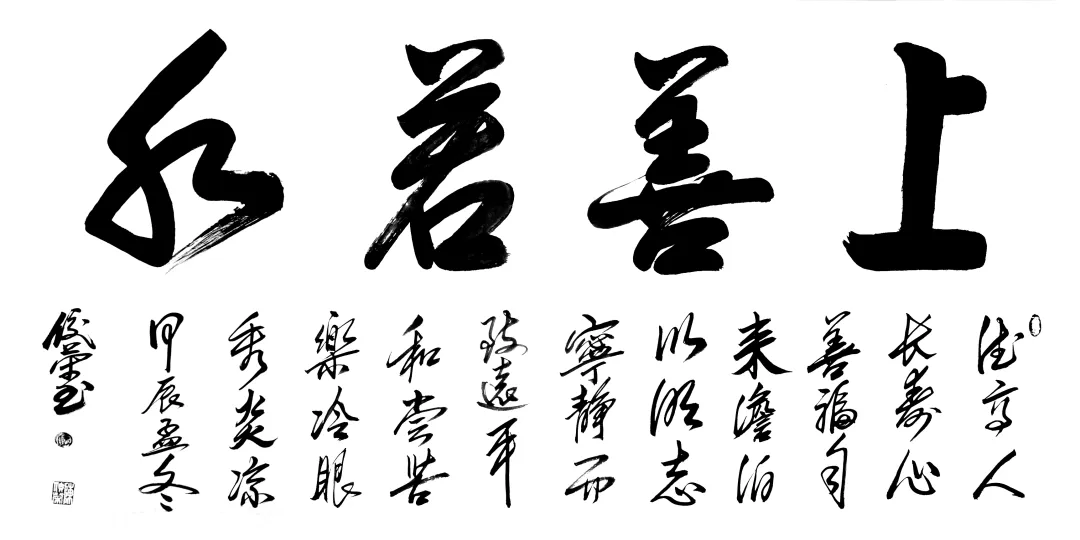 上善若水
德高人
长寿心
善福自
来澹泊
以明志
寧静而
致遠平
和尝苦
樂冷眼
看炎凉
甲辰孟冬